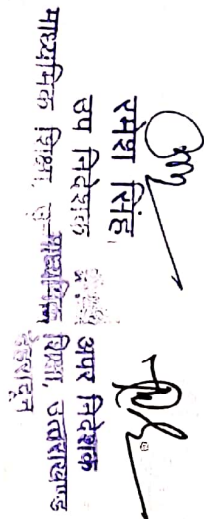 रमेश सिंह,
उप निदेशक
माध्यमिक शिक्षा,
अपर निदेशक
माध्यमिक शिक्षा, उत्तराखण्ड
देहरादून